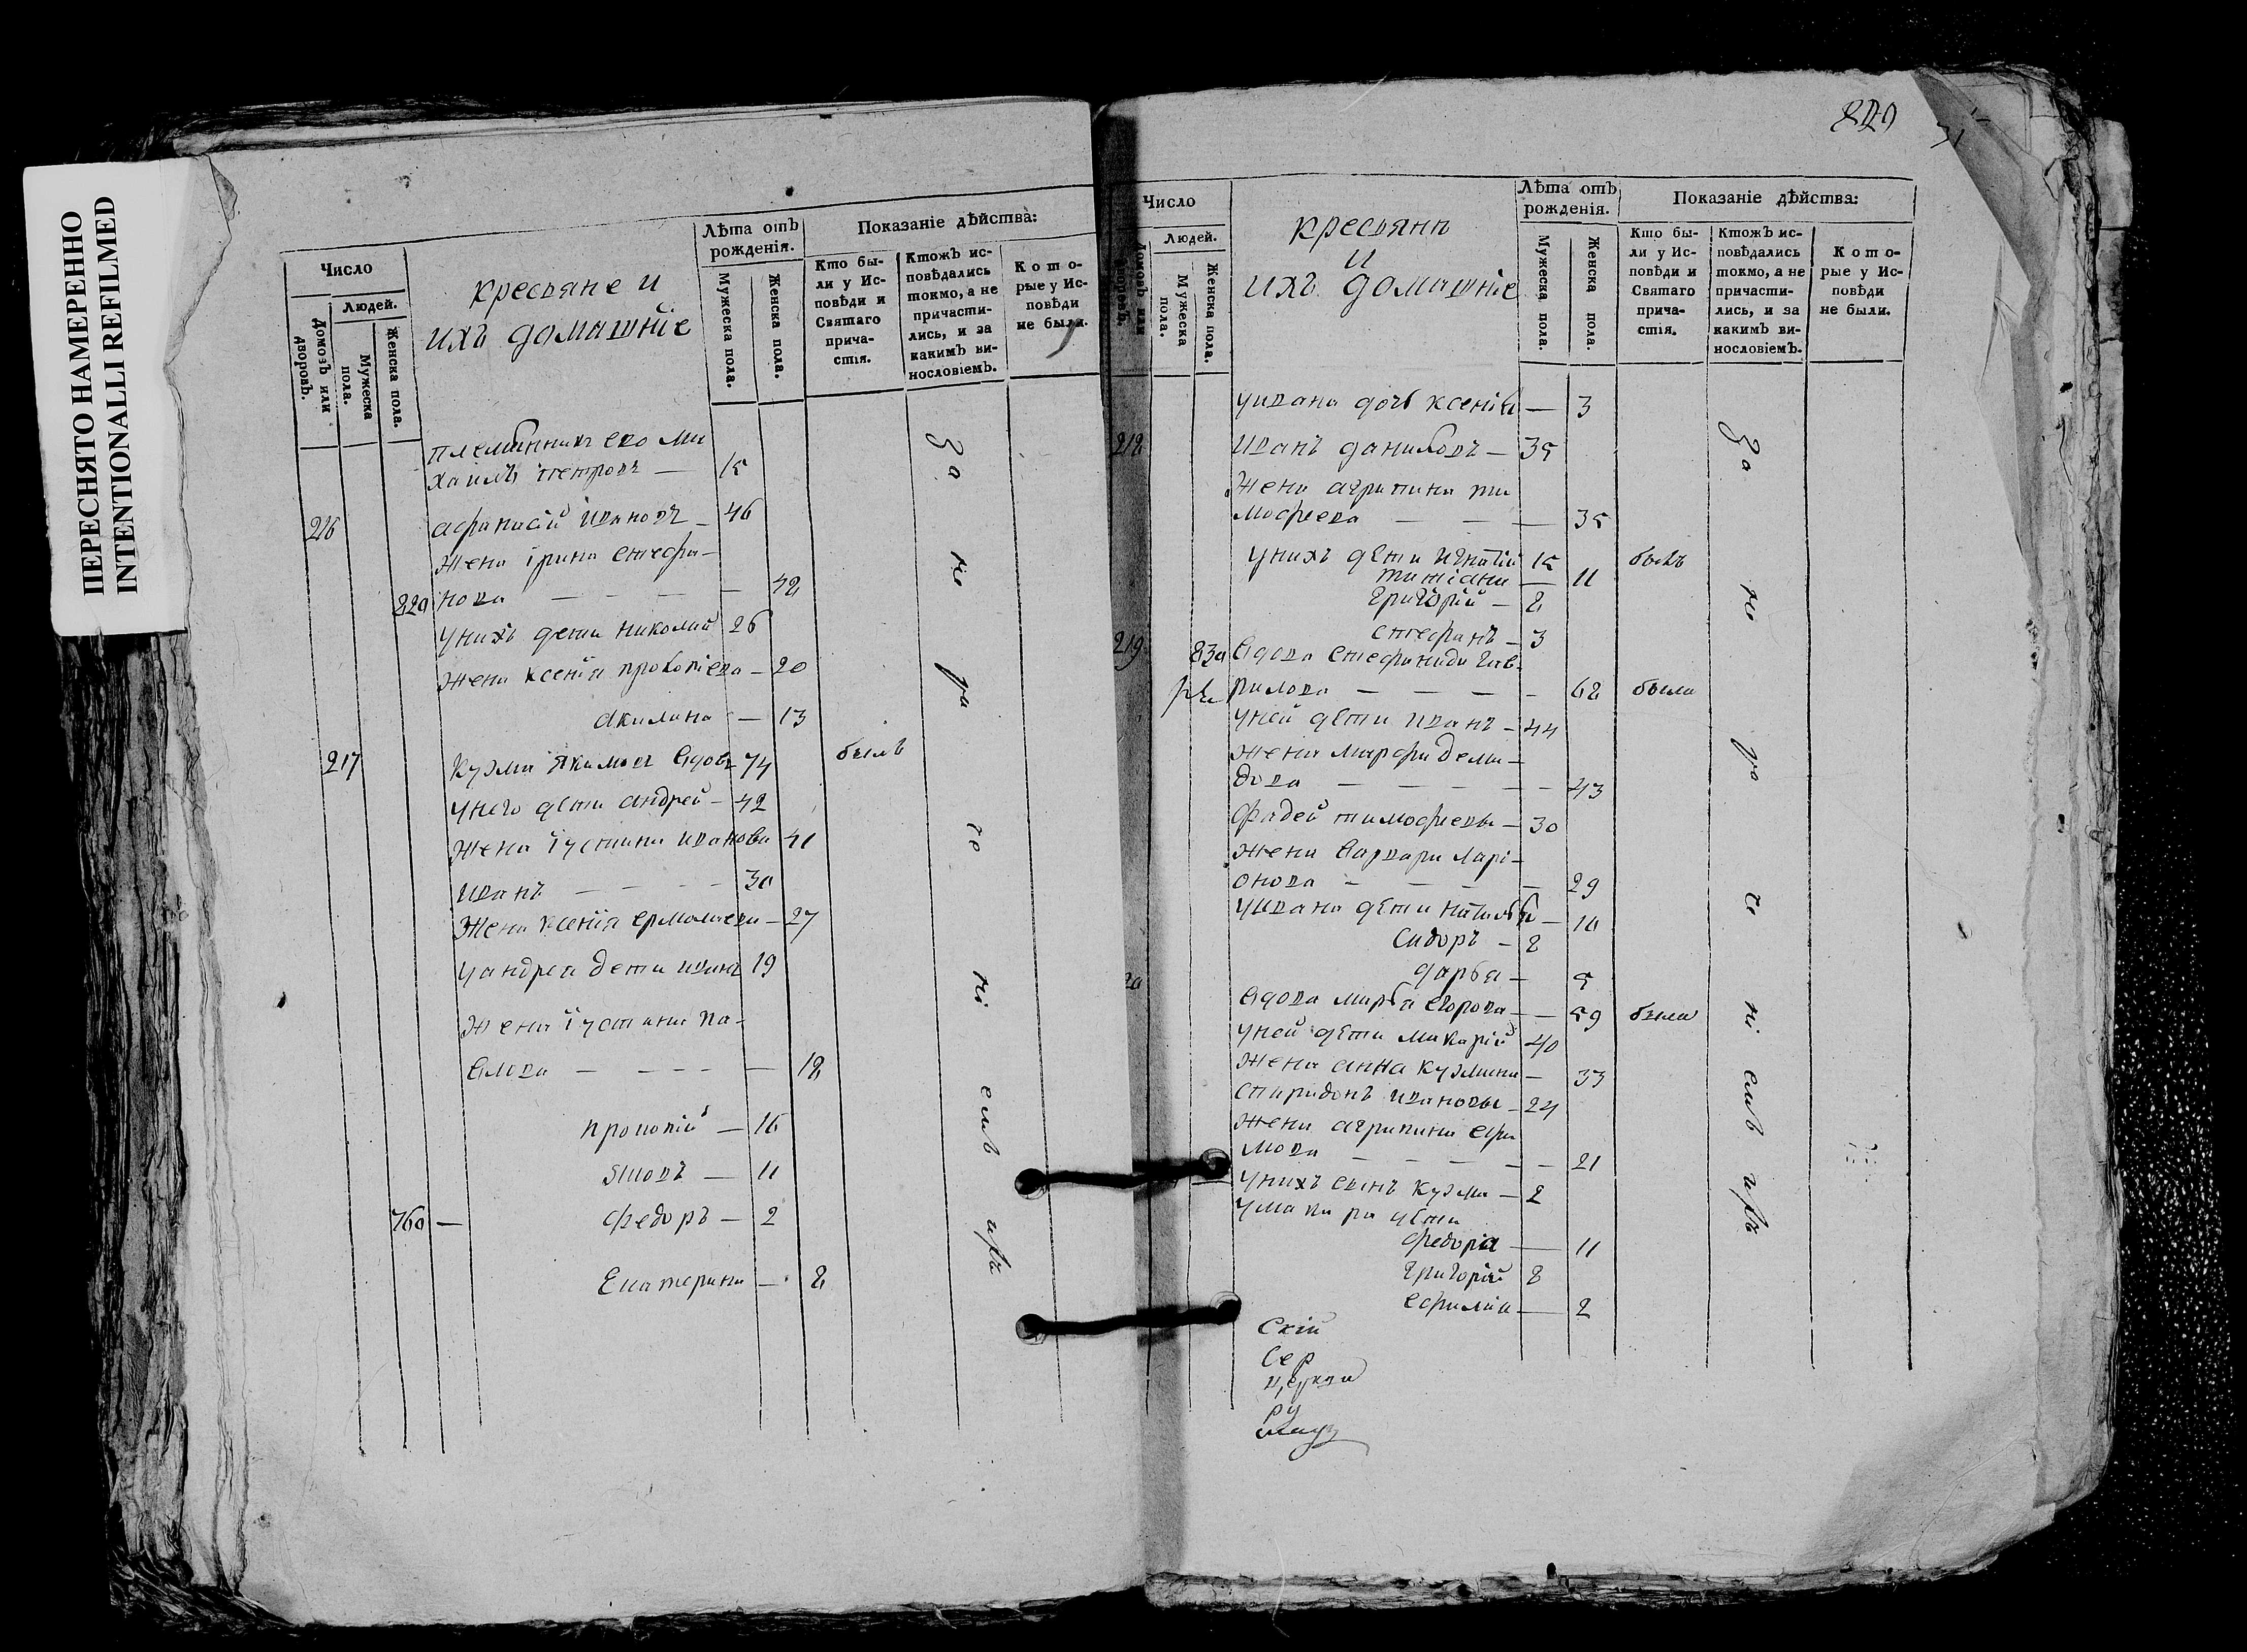 ПЕРЕСНЯТО НАМЕРЕННО
INTENTIONALLI REFILMED
Число
Людей.
Домовъ или дворовъ.
Мужеска пола.
Женска пола.
крестьяне и
ихъ домашніе
Лѣта отъ рожденія.
Мужеска пола.
Женска пола.
Показаніе дѣйства:
Кто были у Исповѣди и Святаго причастія.
Ктожъ исповѣдались токмо, а не причастились, и за какимъ винословіемъ.
Которые у Исповѣди не были.
племянникъ его Ми
хаилъ петровъ — 15
216 афанасій Ивановъ — 46
жена ірина стефа-
829 нова — — — — 42
унихъ дети николай 26
жена ксенія прокопіева — 20
акилина — 13
217 кузма якимовъ вдовъ 74 былъ
унего дѣти андрей — 42
жена іустина иванова 41
иванъ — — — — 30
жена ксенія ермолаева — 27
уандрея дети иванъ 19
жена іустина па-
влова — — — — 18
прокопій — 16
яковъ — 11
760 — федоръ — 2
Екатерина — 8
За не ра че ні емъ
829
Число
Людей.
Домовъ или дворовъ.
Мужеска пола.
Женска пола.
крестьянъ
и
ихъ домашніе
Лѣта отъ рожденія.
Мужеска пола.
Женска пола.
Показаніе дѣйства:
Кто были у Исповѣди и Святаго причастія.
Ктожъ исповѣдались токмо, а не причастились, и за какимъ винословіемъ.
Которые у Исповѣди не были.
уивана дочь ксенія — 3
218 иванъ даниловъ — 35
жена агрипина ти
мофеева — — — 35
унихъ дѣти игнатій 15 былъ
татіана — 11
григорій — 8
стефанъ — 3
219 830 вдова стефанида гав-
рилова — — — — 62 была
уней дѣти иванъ — 44
жена марфа деми-
дова — — — — — 43
фадей тимофеевы — 30
жена варвара ларі-
онова — — — — 29
уивана дѣти наталья — 10
сидоръ — 8
дарья — 5
20 вдова марья егорова — — 59 была
уней дѣти макарій 40
жена анна кузмина — 33
спиридонъ ивановы — 24
жена агрипина ефи
мова — — — — — 21
унихъ сынъ кузма — 2
умакара дѣти
федора — 11
григорій 8
ефимія — 2
За не ра че ні емъ
Скій
Сер
церкви
ру